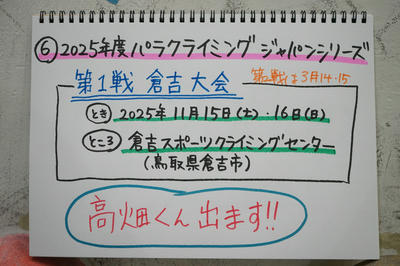 ⑥ 2025年度 パラクライミング ジャパンシリーズ
第1戦 倉吉大会
第2戦は3月14・15
とき 2025年11月15日(土)・16日(日)
ところ 倉吉スポーツクライミングセンター
(鳥取県倉吉市)
高畑くん出ます!!